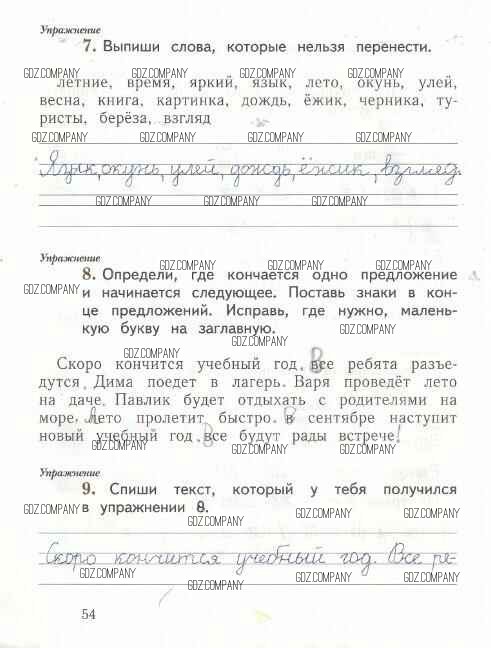 Упражнение
7. Выпиши слова, которые нельзя перенести.
GDZ.COMPANY GDZ.COMPANY GDZ.COMPANY GDZ.COMPANY
летние, время, яркий, язык, лето, окунь, улей,
весна, книга, картинка, дождь, ёжик, черника, ту-
ристы, берёза, взгляд
GDZ.COMPANY GDZ.COMPANY GDZ.COMPANY GDZ.COMPANY
Язык, окунь, улей, дождь, ёжик, взгляд.
GDZ.COMPANY GDZ.COMPANY GDZ.COMPANY
Упражнение
GDZ.COMPANY
8. Определи, где кончается одно предложение
GDZ.COMPANY
и начинается следующее. Поставь знаки в кон-
GDZ.COMPANY
це предложений. Исправь, где нужно, малень-
кую букву на заглавную.
GDZ.COMPANY GDZ.COMPANY
GDZ.COMPANY
Скоро кончится учебный год. Все ребята разъе-
GDZ.COMPANY
дутся. Дима поедет в лагерь. Варя проведёт лето
на даче. Павлик будет отдыхать с родителями на
море. Лето пролетит быстро. В сентябре наступит
новый учебный год. Все будут рады встрече!
GDZ.COMPANY GDZ.COMPANY GDZ.COMPANY
Упражнение
GDZ.COMPANY
9. Спиши текст, который у тебя получился
GDZ.COMPANY
в упражнении 8.
GDZ.COMPANY GDZ.COMPANY GDZ.COMPANY
Скоро кончится учебный год. Все ре-
GDZ.COMPANY GDZ.COMPANY GDZ.COMPANY GDZ.COMPANY
54